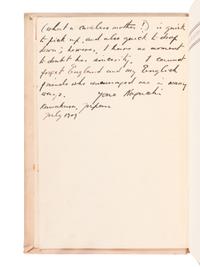 (what a careless mother!) is quick
to pick up, and also quick to drop
down; however, I have no moment
to doubt her sincerity. I cannot
forget England and my English
friends who encouraged me in many
ways. Yone Noguchi
Kamakura, Japan
July 1909